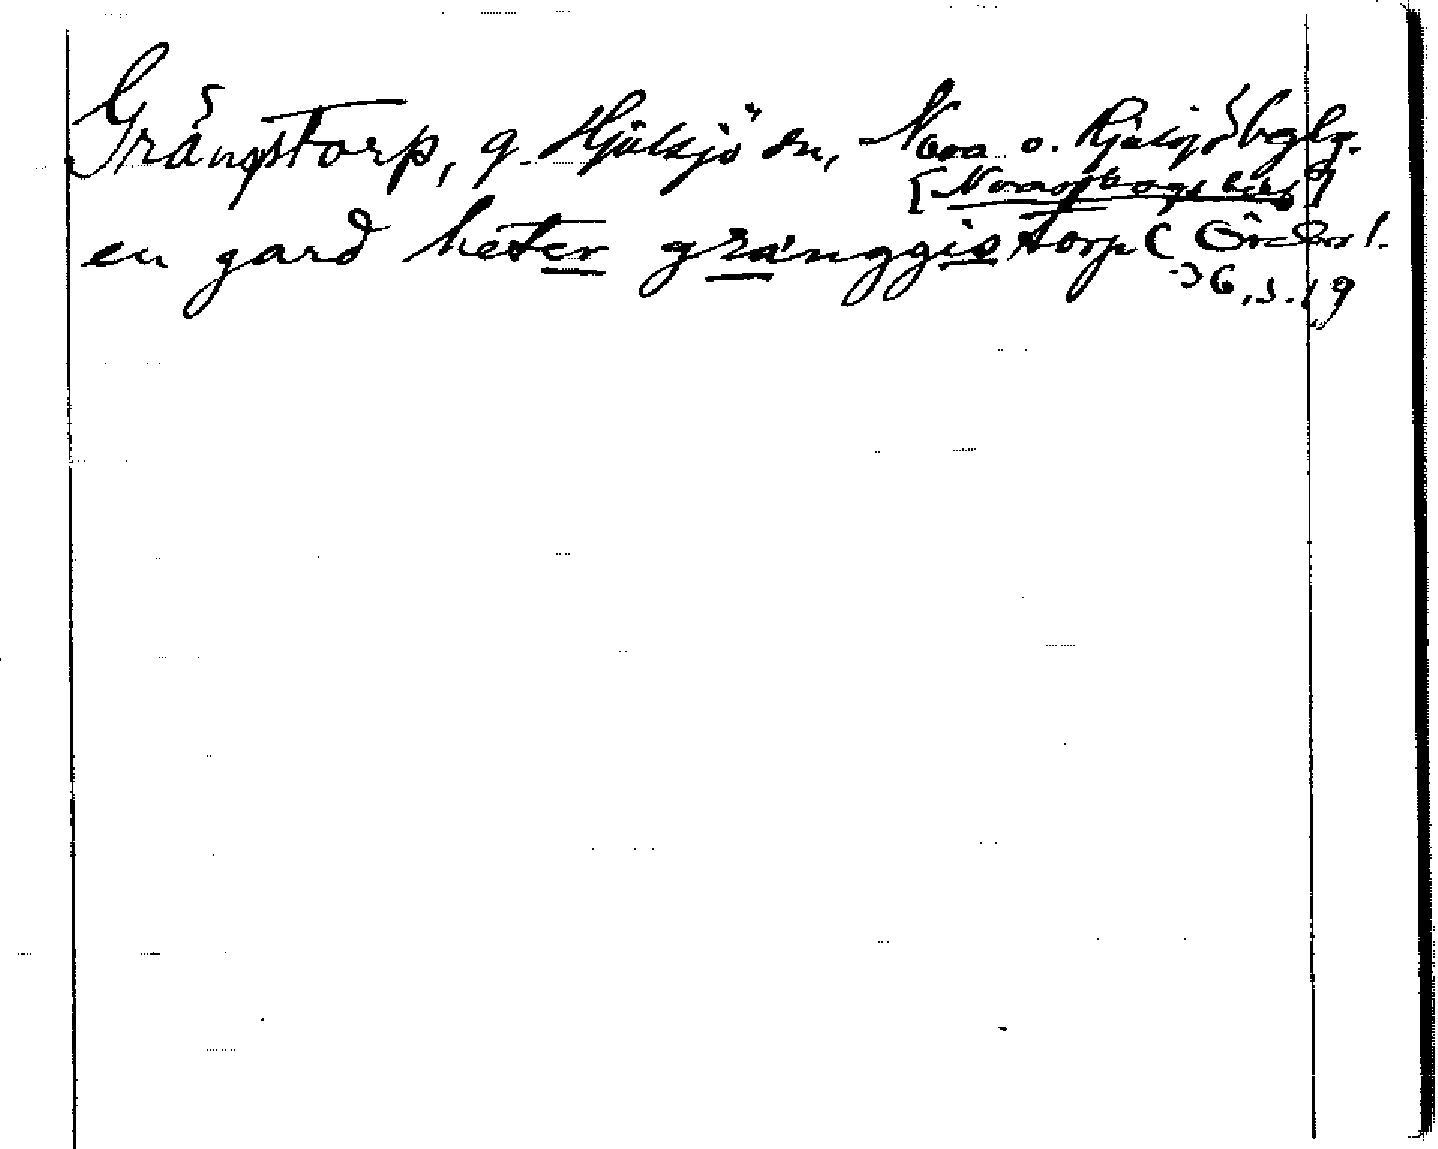 Grängstorp, g. Hjulsjö sn, Nora o. Hjulsjö bglg.
[Noraskogs bärg]
en gard heter gränggistorp (Ör. Sborl.
36, s. 19